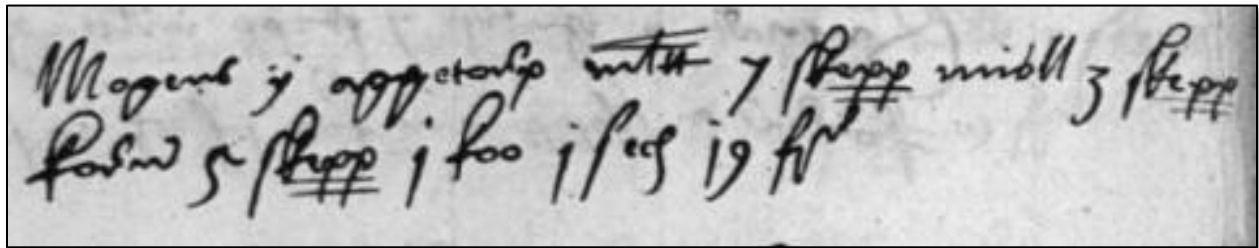 Mogens ij aggetorup 7 skepp miöll 3 skepp
korn 5 skepp j koo j sech j9 får